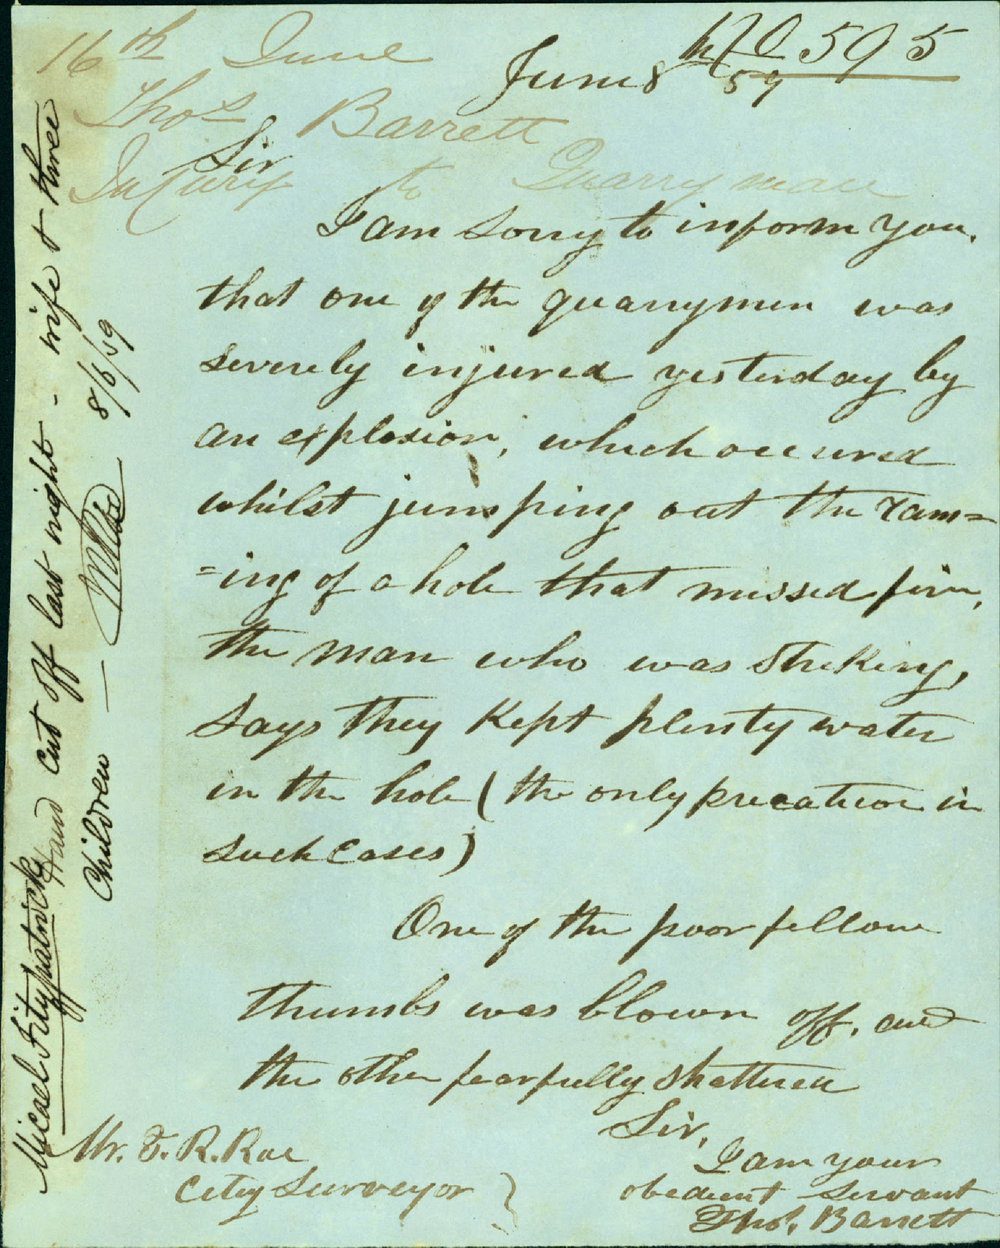 No 595
June 8th 59
16th June
Thos Barrett
Injury to Quarryman
Sir
I am sorry to inform you.
that one of the quarrymen was
severely injured yesterday by
an explosion, which occured
whilst jumping out the Tam=
=ing of a hole that missed fire,
the man who was streking,
says they Kept plenty water
in the hole (the only precatuon in
such cases)
One of the poor fellow
thumbs was blown off, and
the other fearfully shattered
Sir,
I am your
obedient servant
Thos. Barrett
Mr. F. R. Rae
City Surveyor
Micael Fitzpatrick
Hand cut off last night - wife & three
Children — 8/6/59